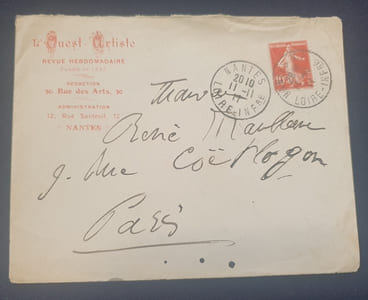 L'Ouest-Artiste
REVUE HEBDOMADAIRE
RÉDACTION
30, Rue des Arts, 30
ADMINISTRATION
12, Rue Santeuil, 12
NANTES
NANTES
20 10
11-11
LOIRE-INFRE
LOIRE-INFRE
René Maublanc
9. Rue Coëtlogon
Paris